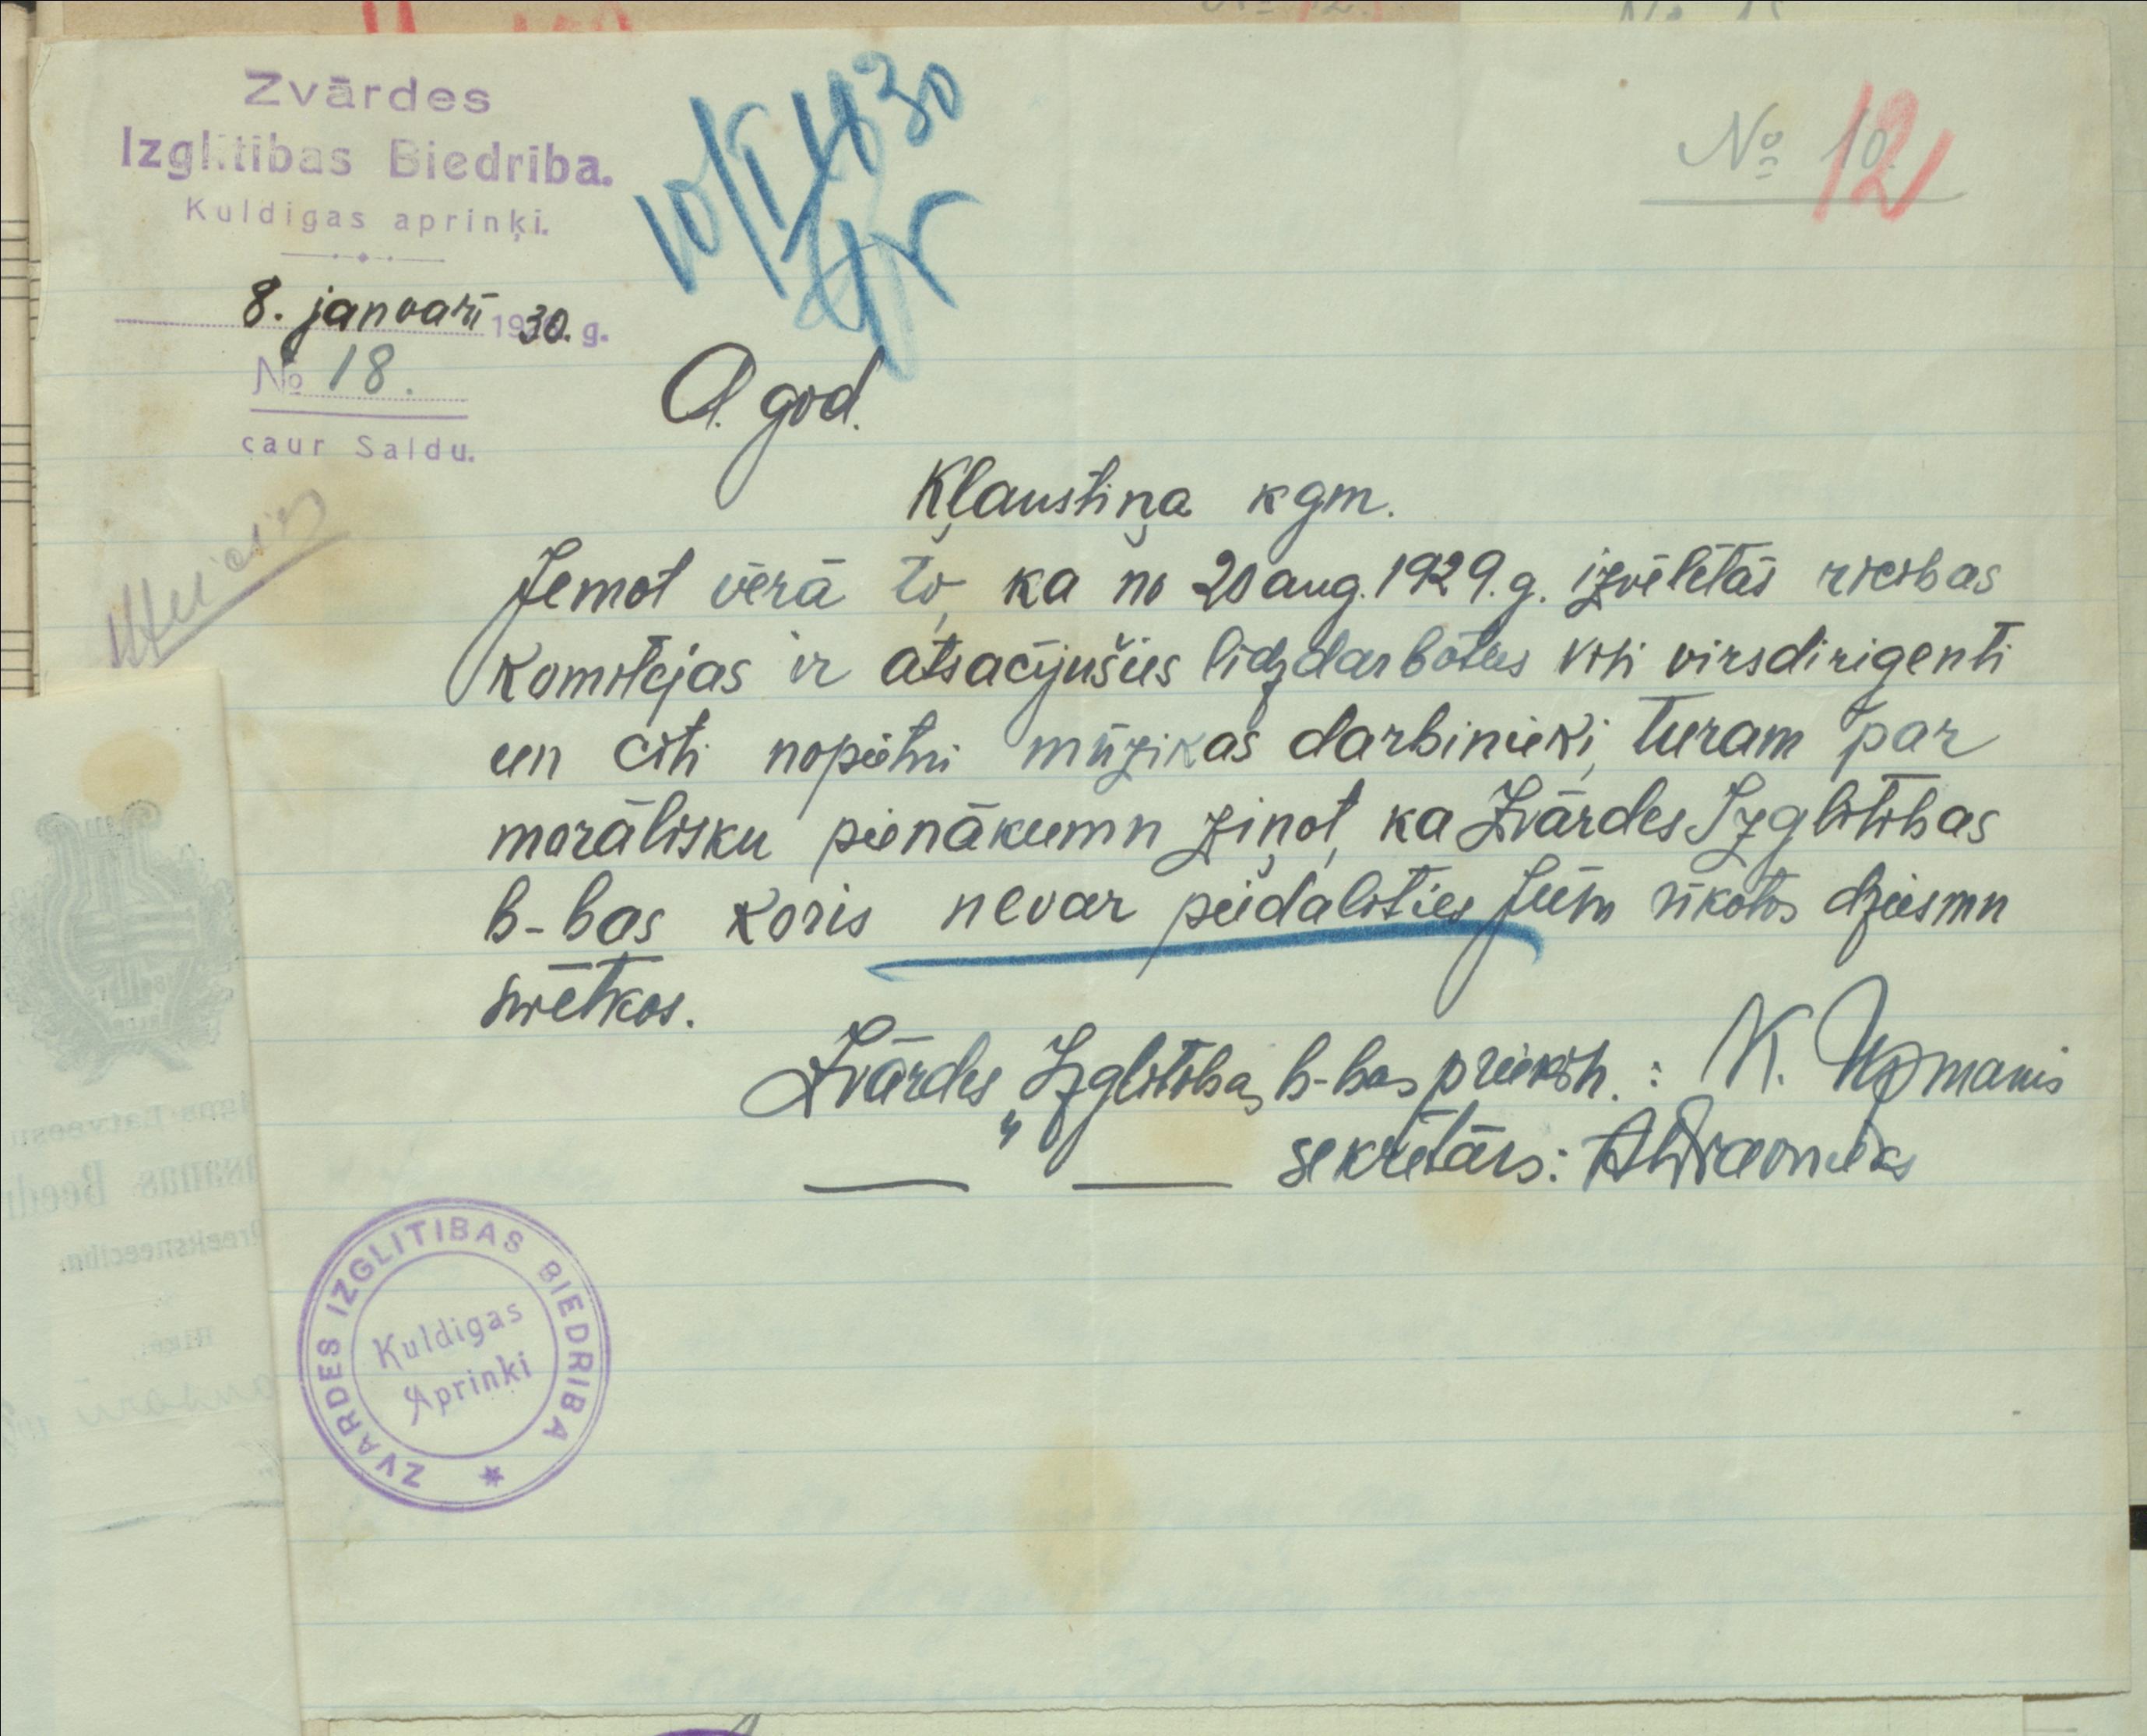 Zvārdes
Izglītības Biedrība.
Kuldīgas apriņķi.
8. janvarī 1930. g.
№ 18.
caur Saldu.
10/I 30
№ 10.
12
A. god.
Kļaustiņa kgm.
Jemot vērā to, ka no 20 aug. 1929. g. izvēlētās rīcības
komitejas ir atsacījušies līdzdarboties visi virsdirigenti
un citi nopietni mūzikas darbinieki, turam par
morālisku pienākumu ziņot, ka Zvārdes Izglītības
b-bas koris nevar piedalīties Jūsu rīkotos dziesmu
svētkos.
Zvārdes Izglītības b-bas priekšn.: K. Upmanis
— „ — sekretārs:
ZVĀRDES IZGLITIBAS BIEDRIBA
Kuldigas
Apriņķi